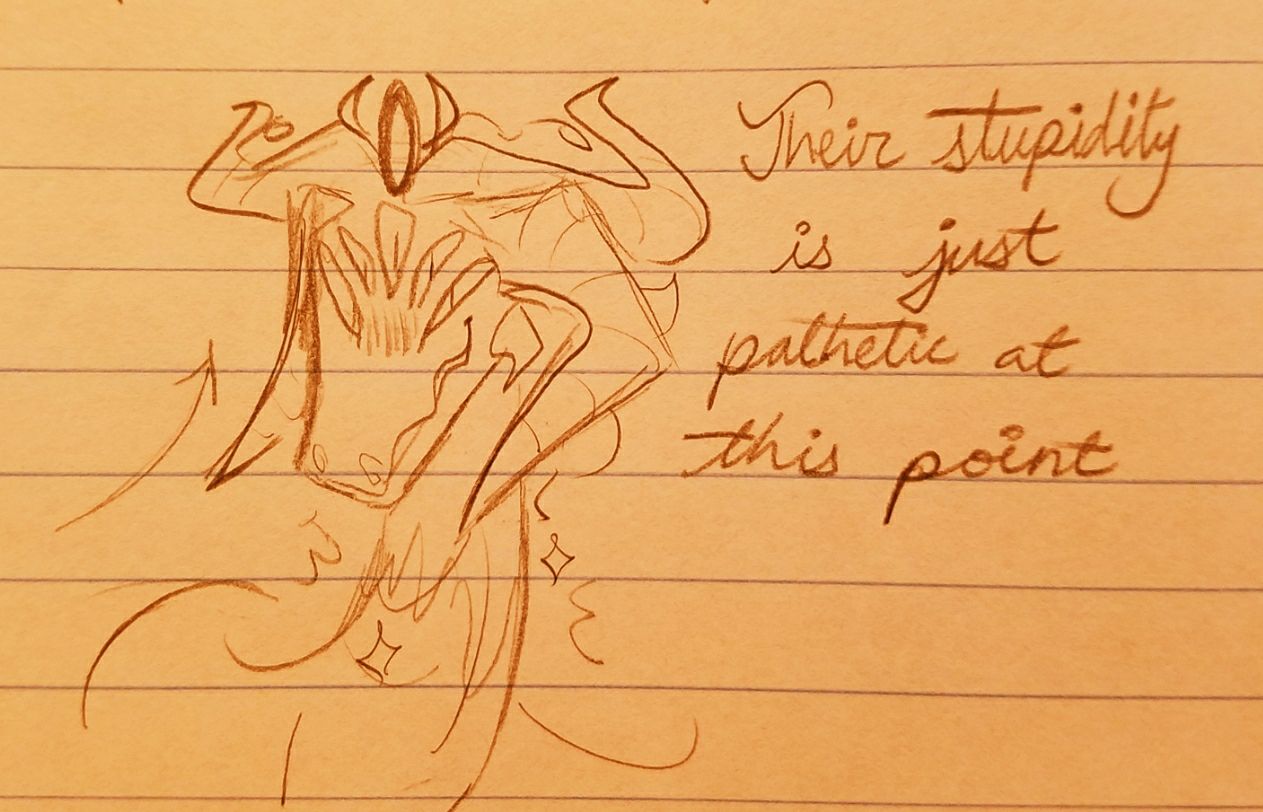 Their stupidity
is just
pathetic at
this point